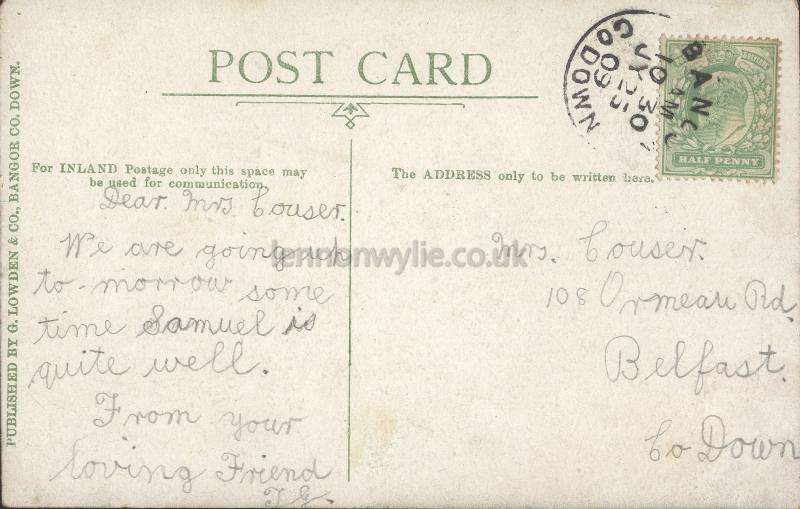 POST CARD
For INLAND Postage only this space may
be used for communication.
The ADDRESS only to be written here.
PUBLISHED BY G. LOWDEN & CO., BANGOR CO. DOWN.
HALF PENNY
BANG
Co DOWN
10 30 AM
JY
09
Dear Mrs Couser.
We are going up
to-morrow some
time Samuel is
quite well.
From your
loving Friend
Mrs. Couser.
108 Ormeau Rd.
Belfast.
Co Down
lennonwylie.co.uk